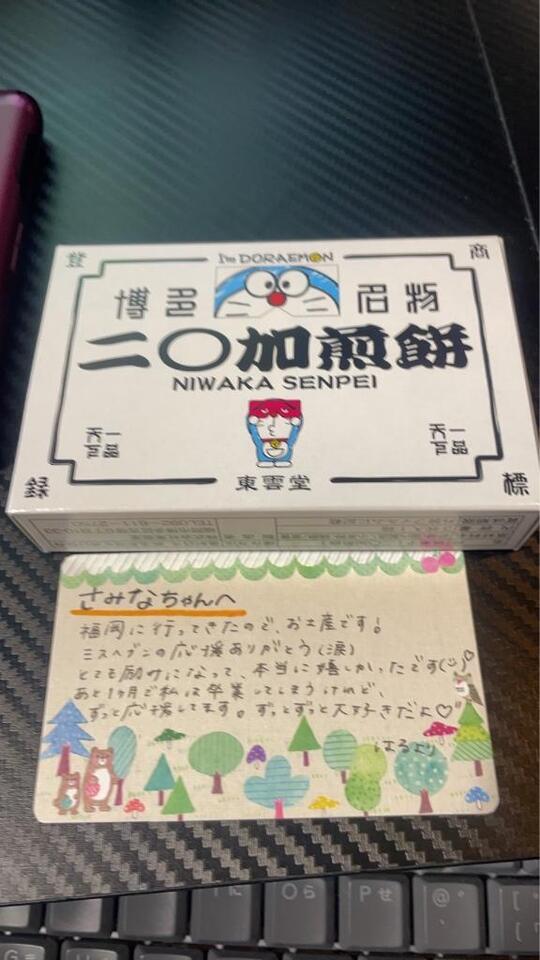 登
商
I'm DORAEMON
博多
名物
二〇加煎餅
NIWAKA SENPEI
天下
一品
天下
一品
録
標
東雲堂
さみなちゃんへ
福岡に行ってきたので、お土産です!
ミスヘブンの応援ありがとう(涙)
とても励みになって、本当に嬉しかったです(:)♡
あと1ヶ月で私は卒業してしまうけれど、
ずっと応援してます。ずっとずっと大好きだよ♡
はるより
に
O ら
P せ
@
[